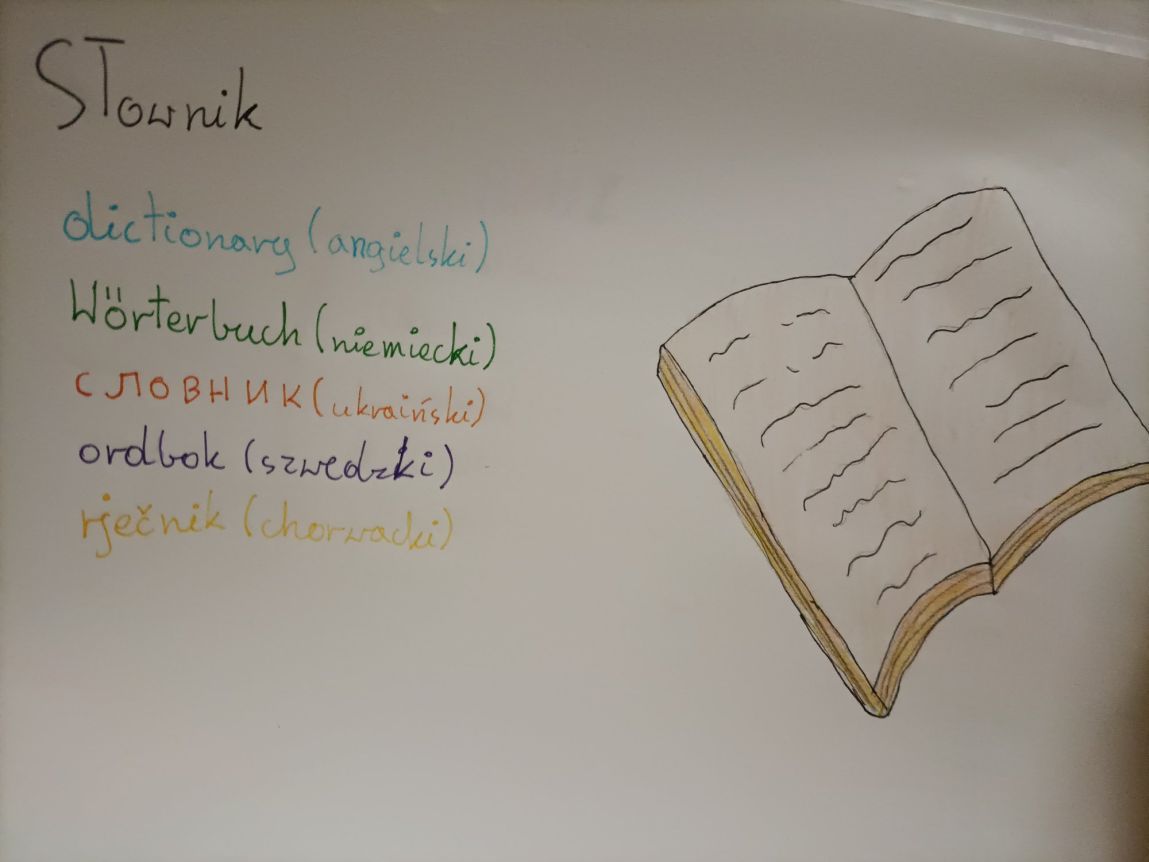 Słownik
dictionary (angielski)
Wörterbuch (niemiecki)
словник (ukraiński)
ordbok (szwedzki)
rječnik (chorwacki)